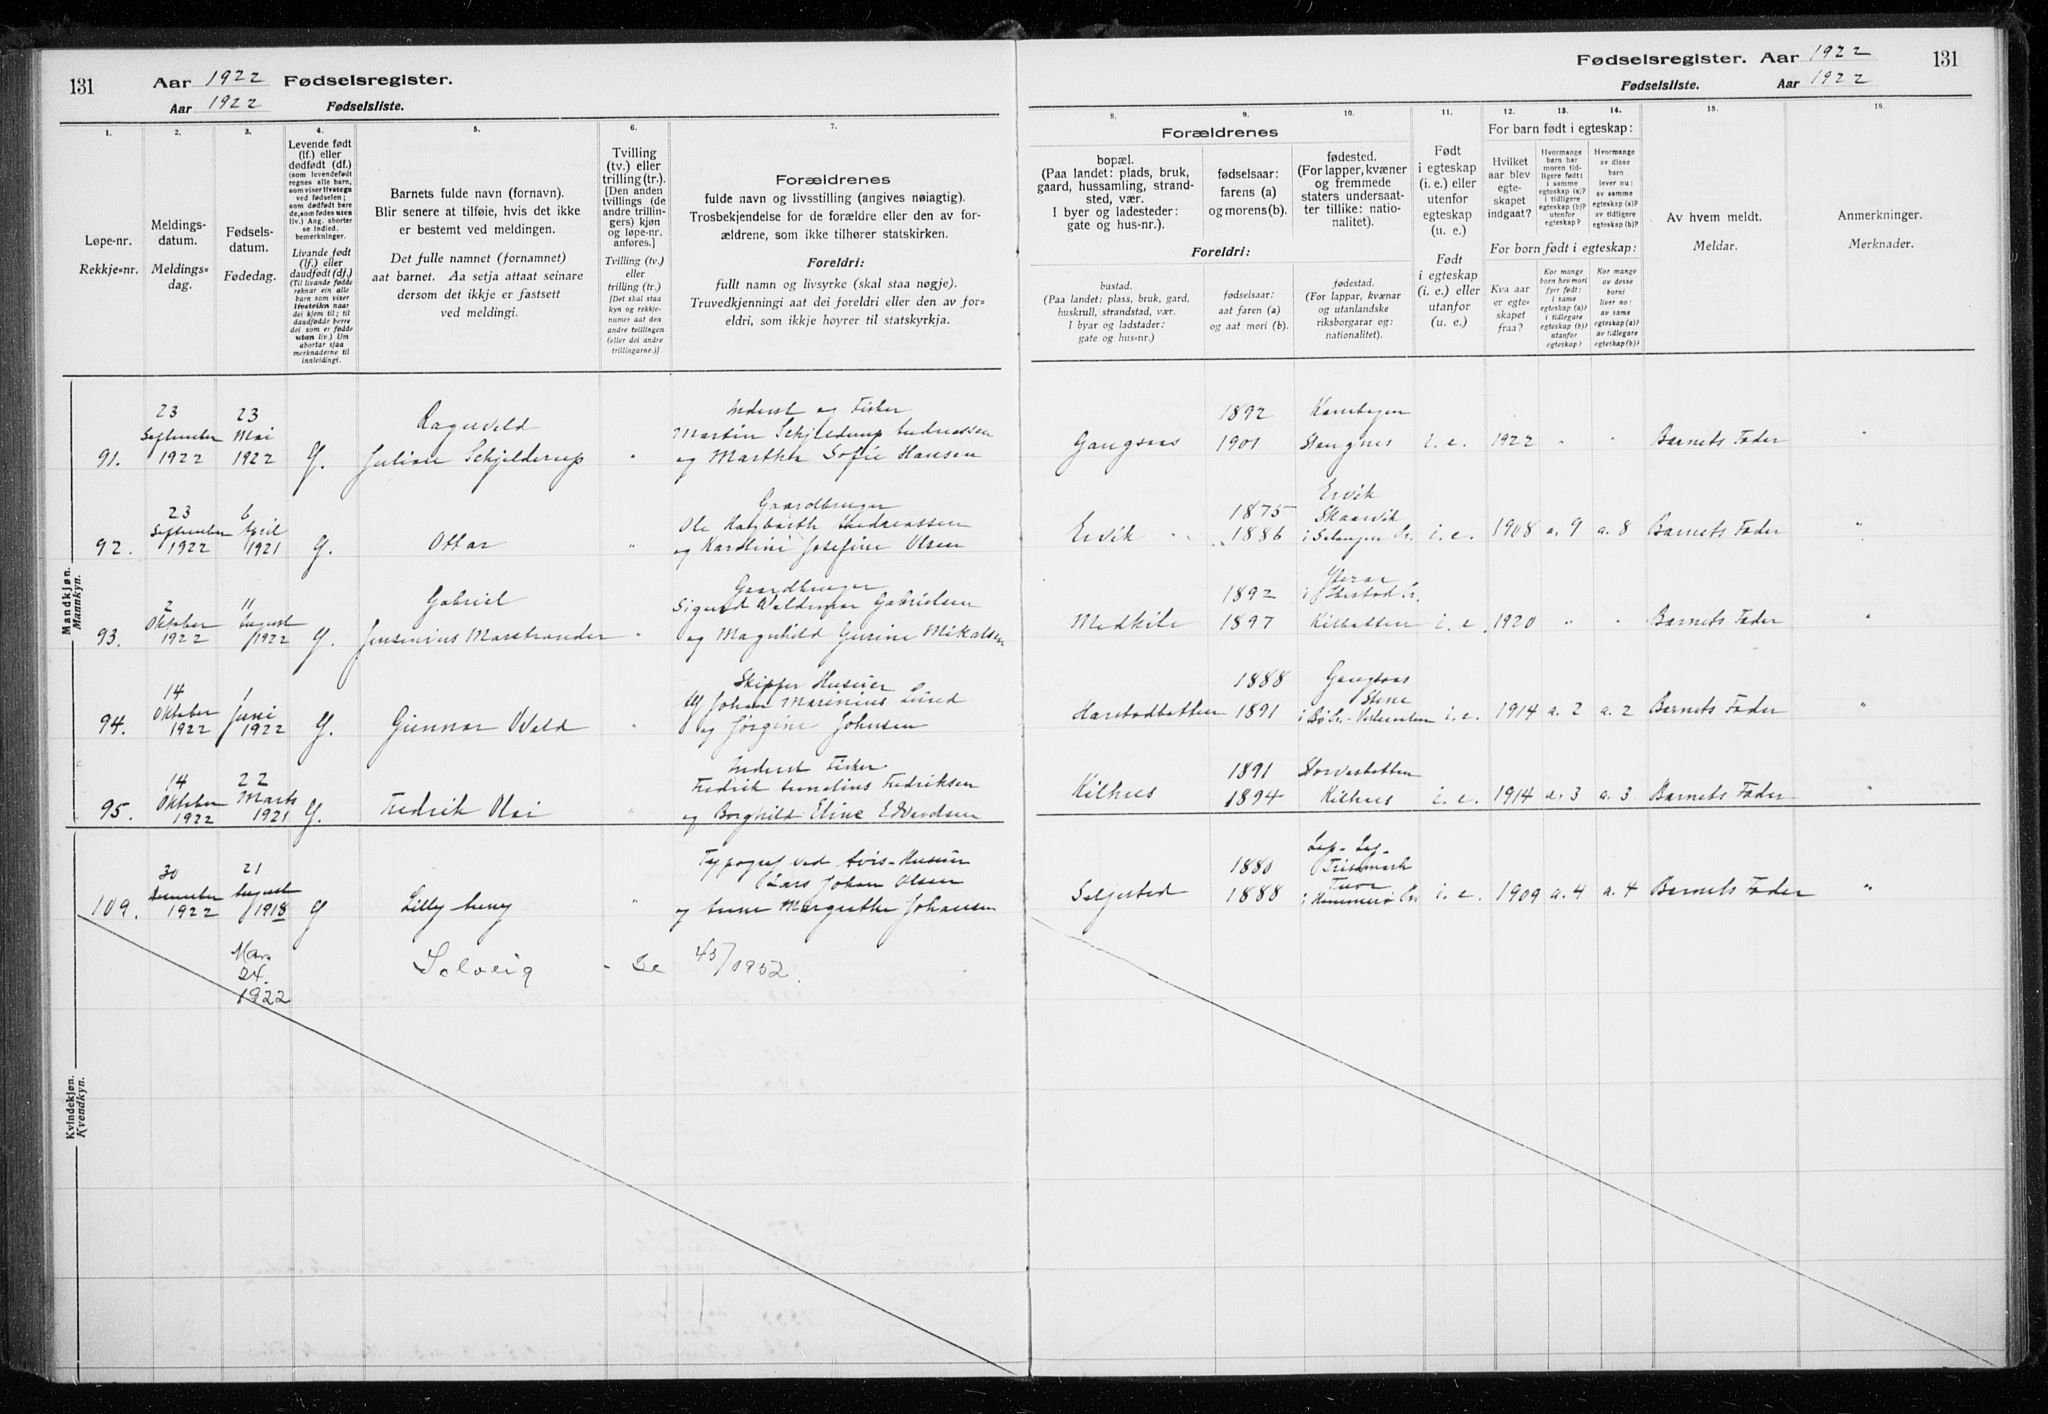 131
Aar 1922 Fødselsregister.
Aar 1922 Fødselsliste.
Fødselsregister. Aar 1922
131
Fødselsliste. Aar 1922
1.
Løpe-nr.
Rekkje-nr.
2.
Meldings-
datum.
Meldings-
dag.
3.
Fødsels-
datum.
Fødedag.
4.
Levende født
(lf.) eller
dødfødt (df.)
(som levendefødt
regnes alle barn,
som viser livstegn
ved fødselen;
som dødfødt bare
de, som fødes uten
liv.) Ang. aborter
se indled.
bemerkninger.
Livande født
(lf.) eller
daudfødt (df.)
(Til livande fødde
reknar ein alle
barn som viser
livsteikn naar
dei kjem til; til
daudfødde berre
dei som er fødde
utan liv.) Um
abortar sjaa
merknaderne til
innleidingi.
5.
Barnets fulde navn (fornavn).
Blir senere at tilføie, hvis det ikke
er bestemt ved meldingen.
Det fulle namnet (fornamnet)
aat barnet. Aa setja attaat seinare
dersom det ikkje er fastsett
ved meldingi.
6.
Tvilling
(tv.) eller
trilling (tr.).
[Den anden
tvillings (de
andre trillin-
gers) kjøn
og løpe-nr.
anføres.]
Tvilling (tv.)
eller
trilling (tr.)
[Det skal staa
kyn og rekkje-
numer aat den
andre tvillingen
(eller dei andre
trillingarne.)]
7.
Forældrenes
fulde navn og livsstilling (angives nøiagtig).
Trosbekjendelse for de forældre eller den av for-
ældrene, som ikke tilhører statskirken.
Foreldri:
fullt namn og livsyrke (skal staa nøgje).
Truvedkjenningi aat dei foreldri eller den av for-
eldri, som ikkje høyrer til statskyrkja.
Forældrenes
8.
bopæl.
(Paa landet: plads, bruk,
gaard, hussamling, strand-
sted, vær.
I byer og ladesteder:
gate og hus-nr.).
9.
fødselsaar:
farens (a)
og morens (b).
10.
fødested.
(For lapper, kvæner
og fremmede
staters undersaat-
ter tillike: natio-
nalitet).
Foreldri:
bustad.
(Paa landet: plass, bruk, gard,
huskrull, strandstad, vær.
I byar og ladstader:
gate og hus-nr.).
fødselsaar:
aat faren (a)
og aat mori (b).
fødestad.
(For lappar, kvænar
og utanlandske
riksborgarar og:
nationalitet).
11.
Født
i egteskap
(i. e.) eller
utenfor
egteskap
(u. e.)
Født
i egteskap
(i. e.) eller
utanfor
(u. e.)
For barn født i egteskap:
12.
Hvilket
aar blev
egte-
skapet
indgaat?
13.
Hvormange
barn har
moren tid-
ligere født:
i samme
egteskap (a)?
i tidligere
egteskap (b)?
utenfor
egteskap?
14.
Hvormange
av disse
barn
lever nu:
av samme
egteskap (a)?
av tidligere
egteskap (b)?
For born født i egteskap:
Kva aar
er egte-
skapet
fraa?
Kor mange
born hev mori
fyrr født:
i same
egteskap (a)?
i tidlegare
egteskap (b)?
utanfor
egteskap?
Kor mange
av desse
borni
liver no:
av same
egteskap (a)?
av tidlegare
egteskap (b)?
15.
Av hvem meldt.
Meldar.
16.
Anmerkninger.
Merknader.
Mandkjøn.
Mannkyn.
91.
23
September
1922
23
Mai
1922
G.
Ragnvald
Julian Schjelderup
"
Inderst og Fisker
Martin Schjelderup Andreassen
og Martha Sofie Hansen
Gangsaas
1892
1901
Stangnes
i. e.
1922
"
"
Barnets Fader
"
92.
23
September
1922
6
April
1921
G.
Ottar
"
Gaardbruger
Ole Andreassen
og Karoline Josefine Olsen
Ervik
1875
1886
Ervik
Skaarvik
i. e.
1908
a. 9
a. 8
Barnets Fader
"
93.
2
Oktober
1922
11
August
1922
G.
Gabriel
Jensenius Marstrander
"
Gaardbruger
Sigurd Waldemar Gabrielsen
og Magnhild Gurine Mikalsen
Medkile
1892
1897
Kilbotten
i. e.
1920
"
"
Barnets Fader
94.
14
Oktober
1922
1
Juni
1922
G.
Gunnar Wald
"
Skipper Huseier
Johan Marinius Lund
og Jørgine Johnsen
Harstadbotten
1888
1891
Gangsaas
Stene
i Bø
i. e.
1914
a. 2
a. 2
Barnets Fader
"
95.
14
Oktober
1922
22
Marts
1921
G.
Fredrik Olai
"
Inderst Fisker
Fredrik Fredriksen
og Borghild Eline Edvardsen
Kilhus
1891
1894
Storvasbotten
Kilhus
i. e.
1914
a. 3
a. 3
Barnets Fader
"
Kvindekjøn.
Kvendkyn.
109.
30
December
1922
21
August
1918
G
Lilly Jenny
"
Typograf ved Avis-Huseier
Lars Johan Olsen
og Anne Margrethe Johansen
Seljestad
1880
1888
Finmark
i. e.
1909
a. 4
a. 4
Barnets Fader
"
Mars
24.
1922
Solveig
- Se 45/1952.